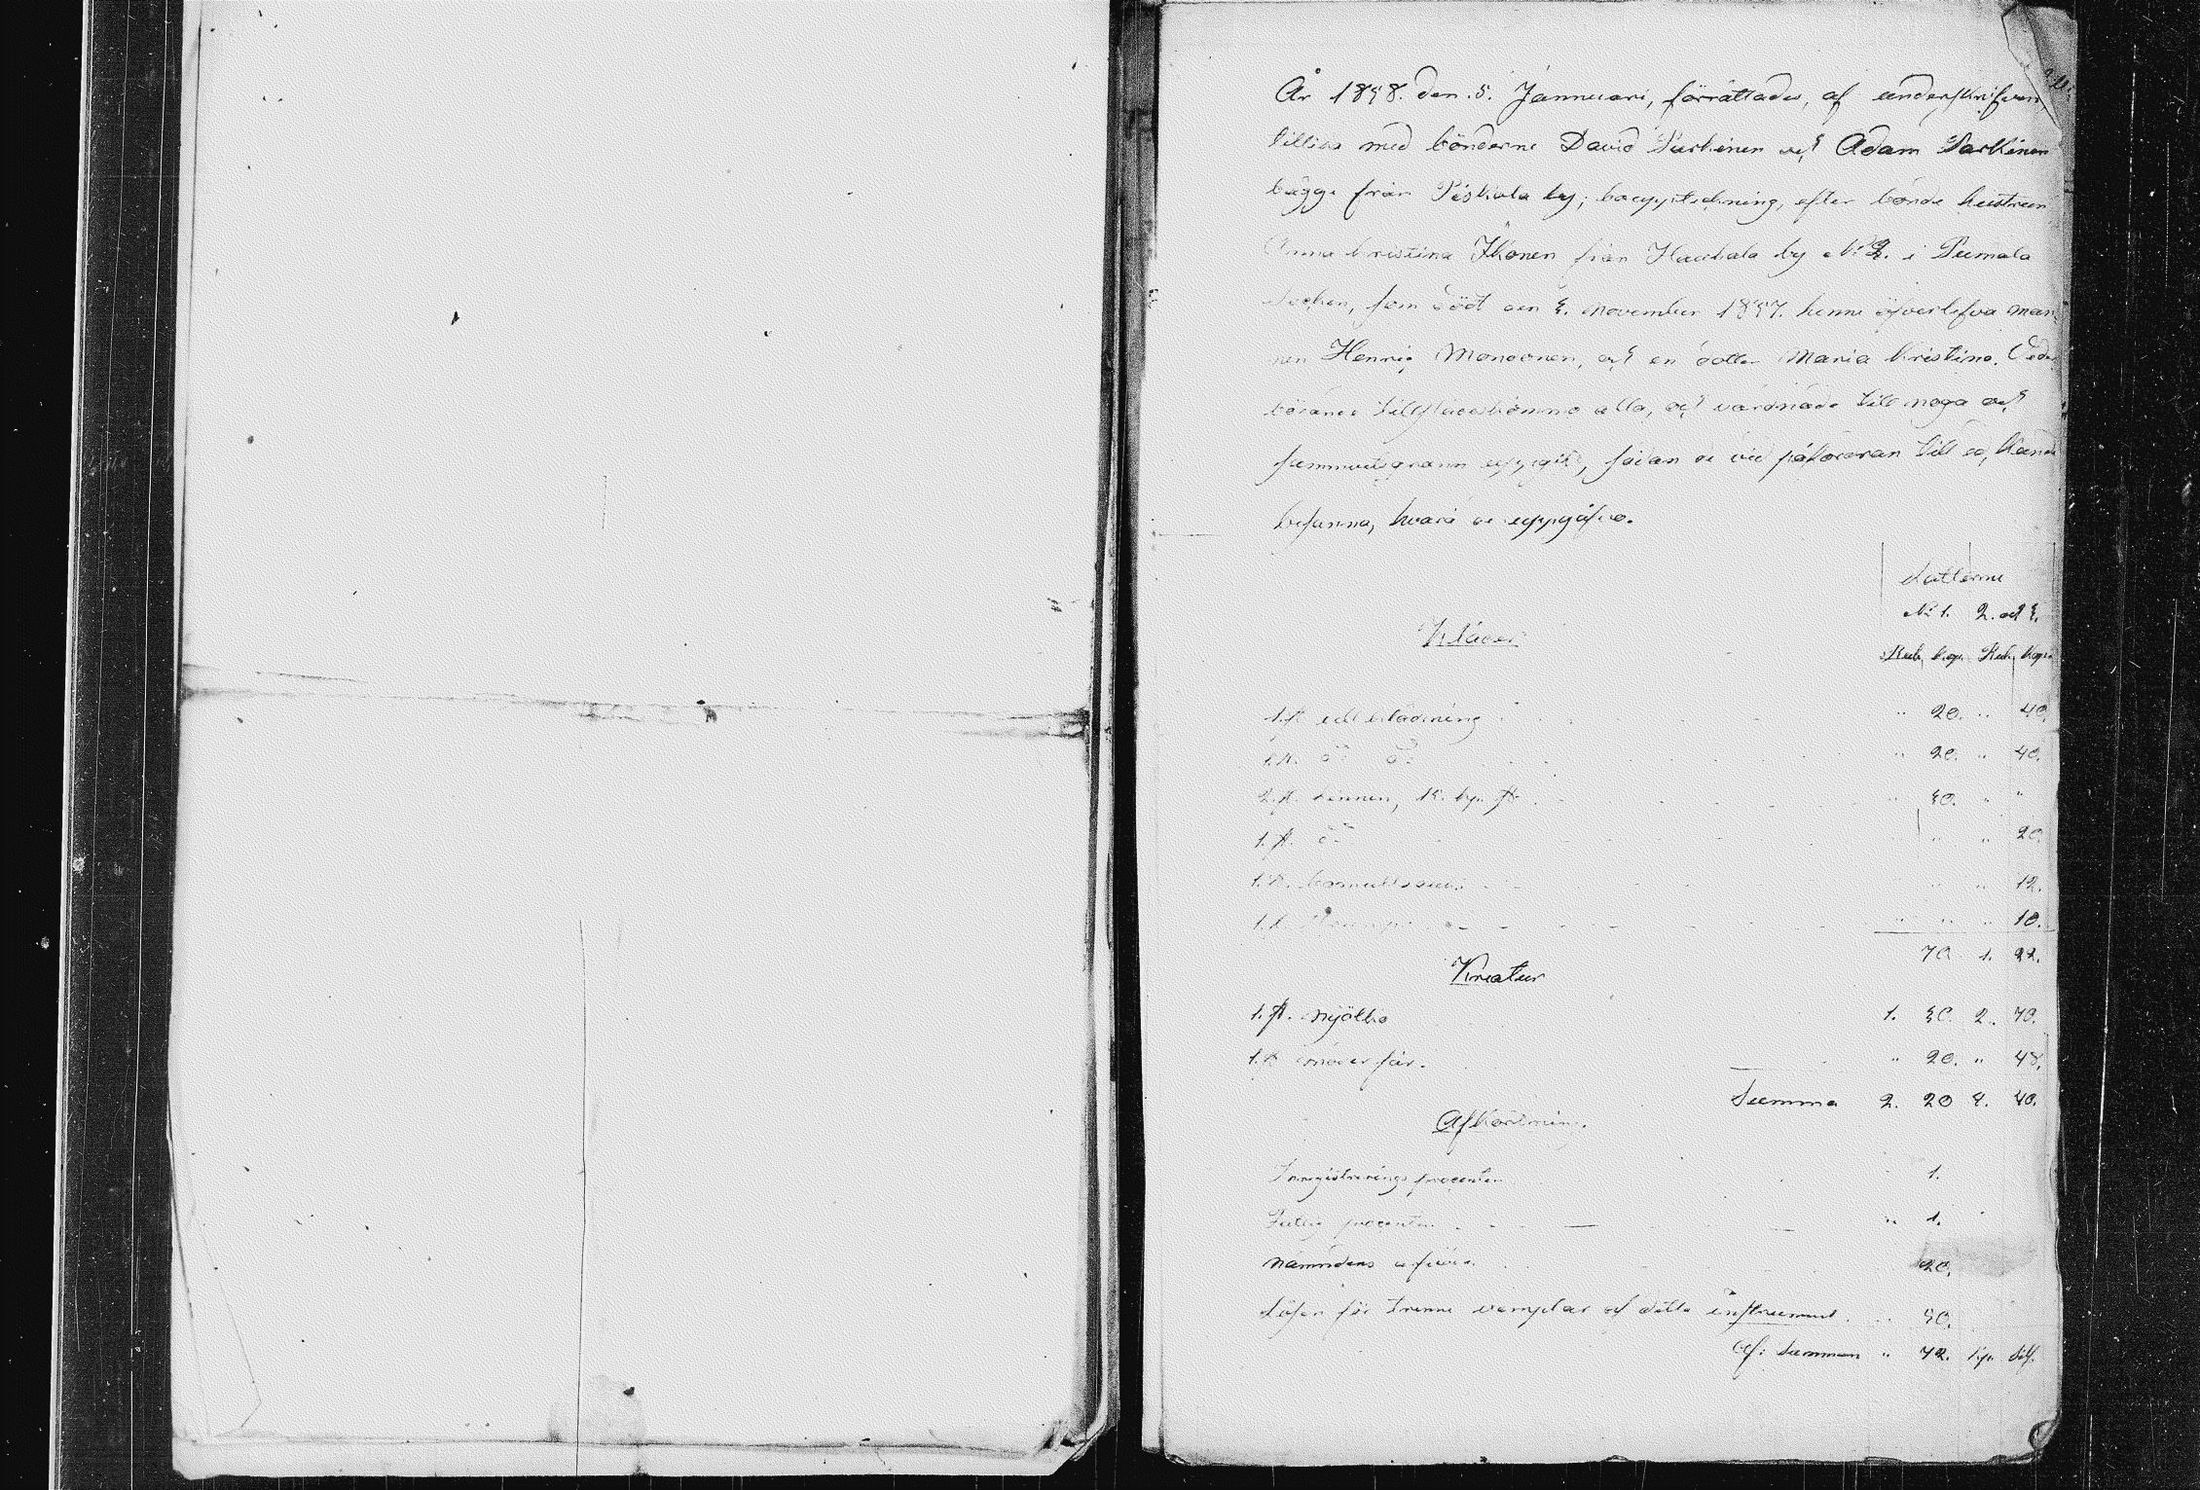 År 1858. den 5. Jannuari, förrättades, af underskrifven
tillika med bönderne David Parkinen och Adam Parkinen
bägge från Piskola by; boupptekning, efter bonde hustrun
Anna Kristina Ikonen från Haukala by No 2. i Pumala
Socken, som död den 5. November 1857. henne öfverlefva man-
nen Henric Manoonen, och en dotter Maria Kristina. Veder
börande tillstädeskommo alla, och varsnade till noga och
samvetsgrann uppgift, sådan de vid påfordran till ed, kunde
befanna, hvará de uppgåfvo.
Latterne
No 1. 2. och 3.
Kläder
Rub. kop. Rub. kop.
1. st. ull klädning " 20. " 40.
1. st. d:o d:o " 20. " 40.
2. st. linnen, 15. kop. st. " 30. " "
1. st. d:o " " 20.
1. st. " " 12.
1. st. " " " 10.
70 1. 22.
Kreatur
1. st. mjölko 1. 30. 2. 70.
1. st. moder får. " 20. " 48.
Summa 2. 20 4. 40.
Afkortning.
Inregistrerings procenten 1.
Fattig procenten " 1.
Nämndens arfvode 20.
Lösen för trenne exemplar af detta instrument. " 50.
Af: Summan " 72. kop. Silf.